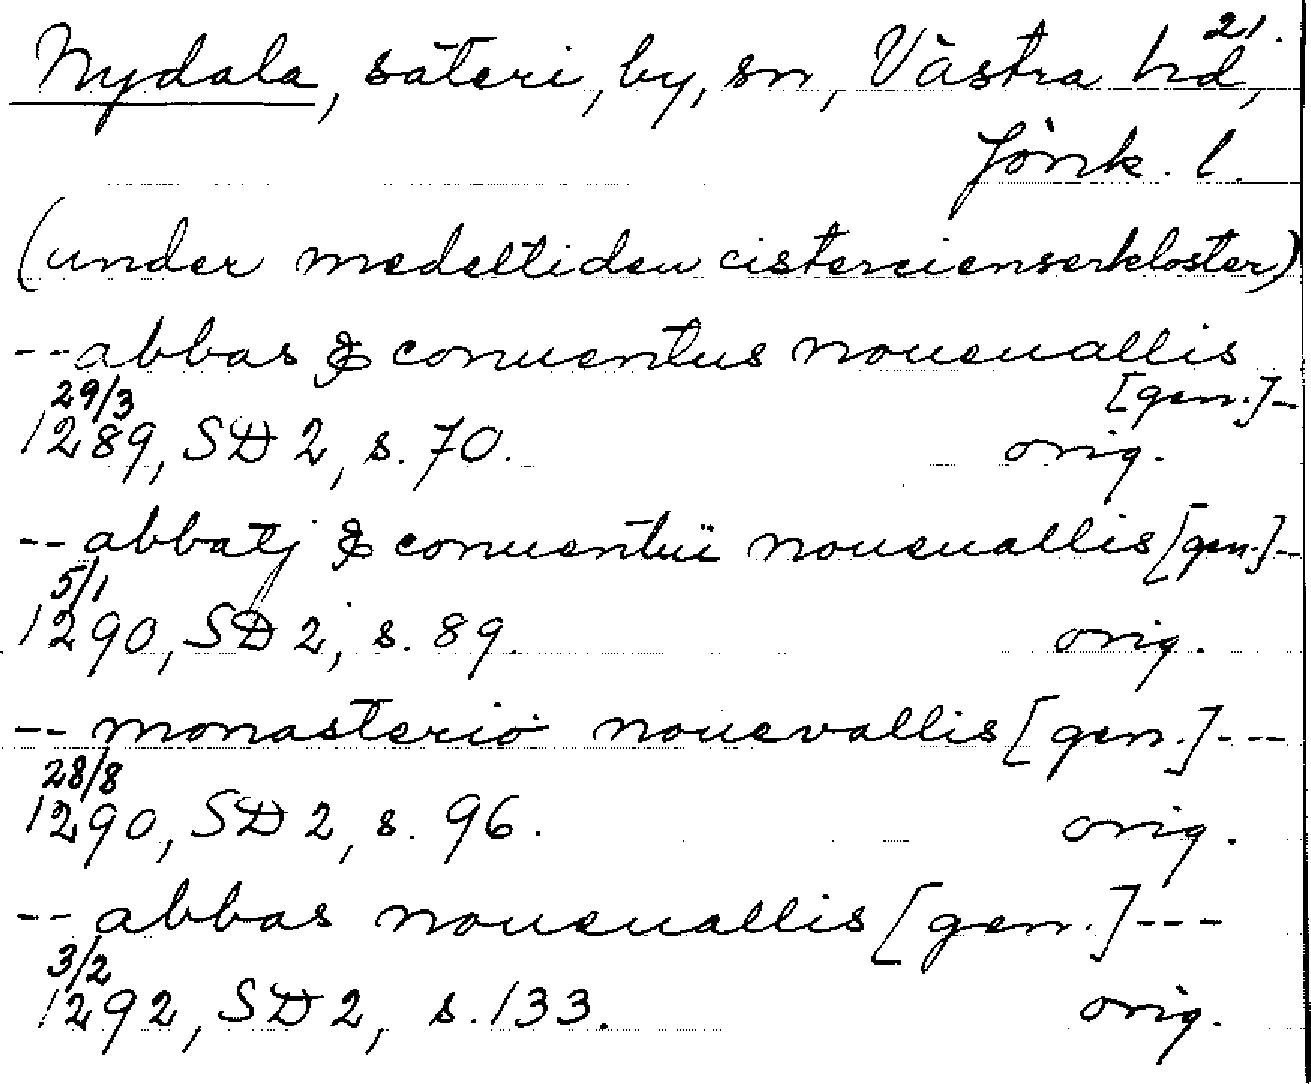 21.
Nydala, säteri, by, sn, Västra hd,
Jönk. l.
(under medeltiden cistercienserkloster)
--abbas & conuentus noueuallis
[gen.]--
29/3
1289, SD 2, s. 70. orig.
--abbatj & conuentui noueuallis [gen.]--
5/1
1290, SD 2, s. 89. orig.
-- monasterio nouevallis [gen.]---
28/8
1290, SD 2, s. 96. orig.
-- abbas noueuallis [gen.]---
3/2
1292, SD 2, s. 133. orig.